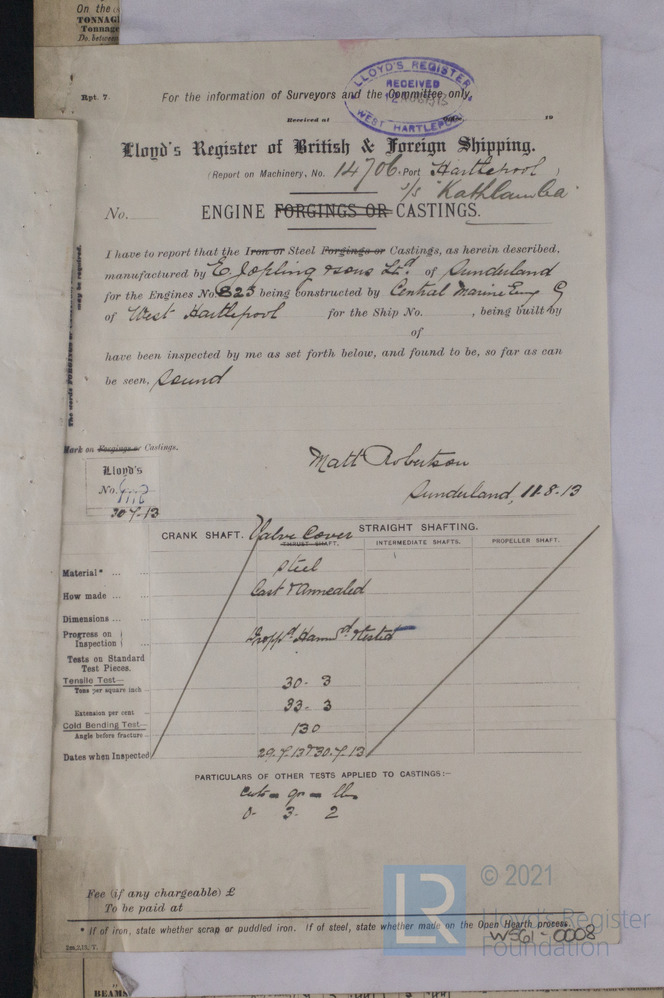 On the
TONNAGE
Tonnage
Do. between
Rpt. 7.
For the information of Surveyors and the Committee only.
LLOYD'S REGISTER
RECEIVED
WEST HARTLEPOOL
Received at
19
Lloyd's Register of British & Foreign Shipping.
(Report on Machinery, No. 14706. Port Hartlepool)
s/s "Kathlamba"
No.
ENGINE FORGINGS OR CASTINGS.
I have to report that the Iron or Steel Forgings or Castings, as herein described,
manufactured by E. Jopling & Sons Ltd. of Sunderland
for the Engines No. 823 being constructed by Central Marine Eng Co
of West Hartlepool for the Ship No. , being built by
of
have been inspected by me as set forth below, and found to be, so far as can
be seen, sound
may be required.
Mark on Forgings or Castings.
Matt Robertson
Lloyd's
No.
30-7-13
Sunderland, 11.8.13
CRANK SHAFT. Valve Cover STRAIGHT SHAFTING.
THRUST SHAFT. INTERMEDIATE SHAFTS. PROPELLER SHAFT.
Material* ... ... Steel
How made ... ... Cast & Annealed
Dimensions ... ...
Progress on
Inspection
Dropped Hammd & tested
Tests on Standard
Test Pieces.
Tensile Test—
Tons per square inch
30-3
Extension per cent
33-3
Cold Bending Test—
Angle before fracture
130
Dates when Inspected 29.7.13 & 30.7.13
PARTICULARS OF OTHER TESTS APPLIED TO CASTINGS:—
Cwts - qr - lb
0- 3- 2
Fee (if any chargeable) £
To be paid at
* If of iron, state whether scrap or puddled iron. If of steel, state whether made on the Open Hearth process.
W561-0008
LR
© 2021
Lloyd's Register
Foundation
BEAMS